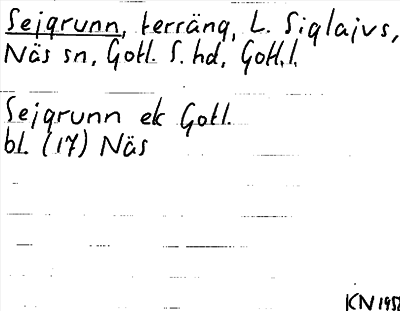 Sejgrunn, terräng, L. Siglajvs,
Näs sn, Gotl. S. hd, Gotl. l.
Sejgrunn ek Gotl.
bl. (17) Näs
KN 1958